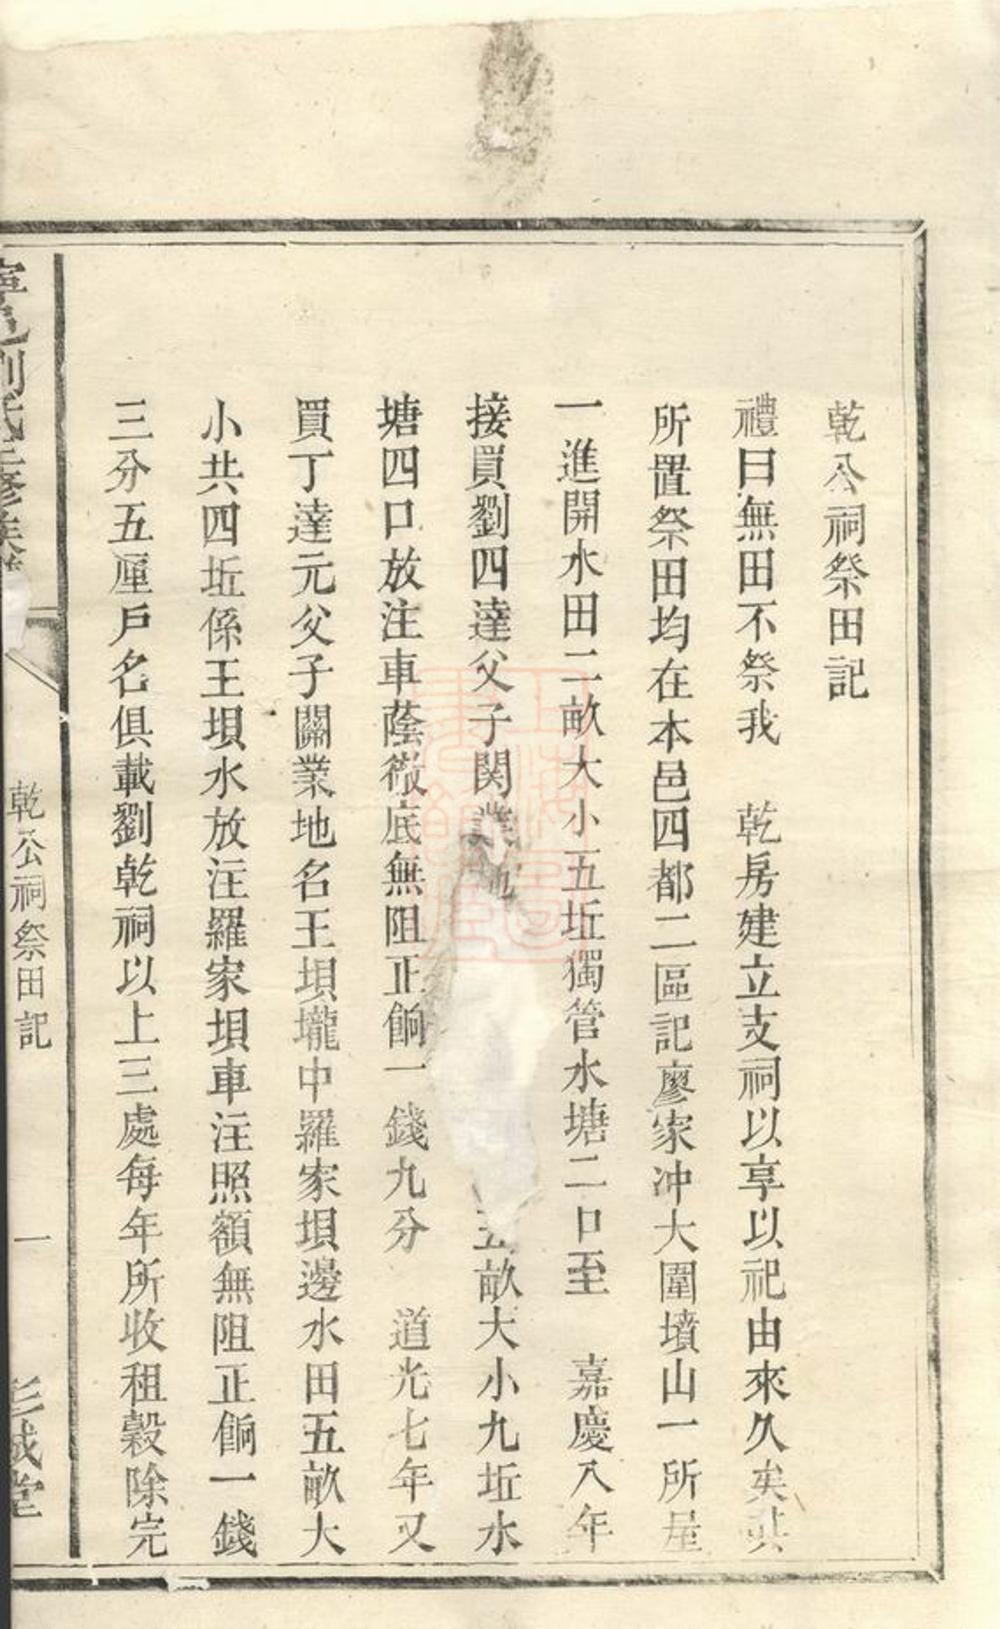 乾公祠祭田記
禮曰無田不祭我　乾房建立支祠以享以祀由來久矣其
所置祭田均在本邑四都二區記廖家冲大圍墳山一所屋
一進開水田二畝大小五坵獨管水塘二口至　嘉慶八年
接買劉四達父子関業地五畝大小九坵水
塘四口放注車蔭徹底無阻正餉一錢九分　道光七年又
買丁達元父子關業地名王垻壠中羅家垻邊水田五畝大
小共四坵係王垻水放注羅家垻車注照額無阻正餉一錢
三分五厘戶名俱載劉乾祠以上三處每年所收租穀除完
寧邑劉氏三修族譜
乾公祠祭田記
一
彭城堂